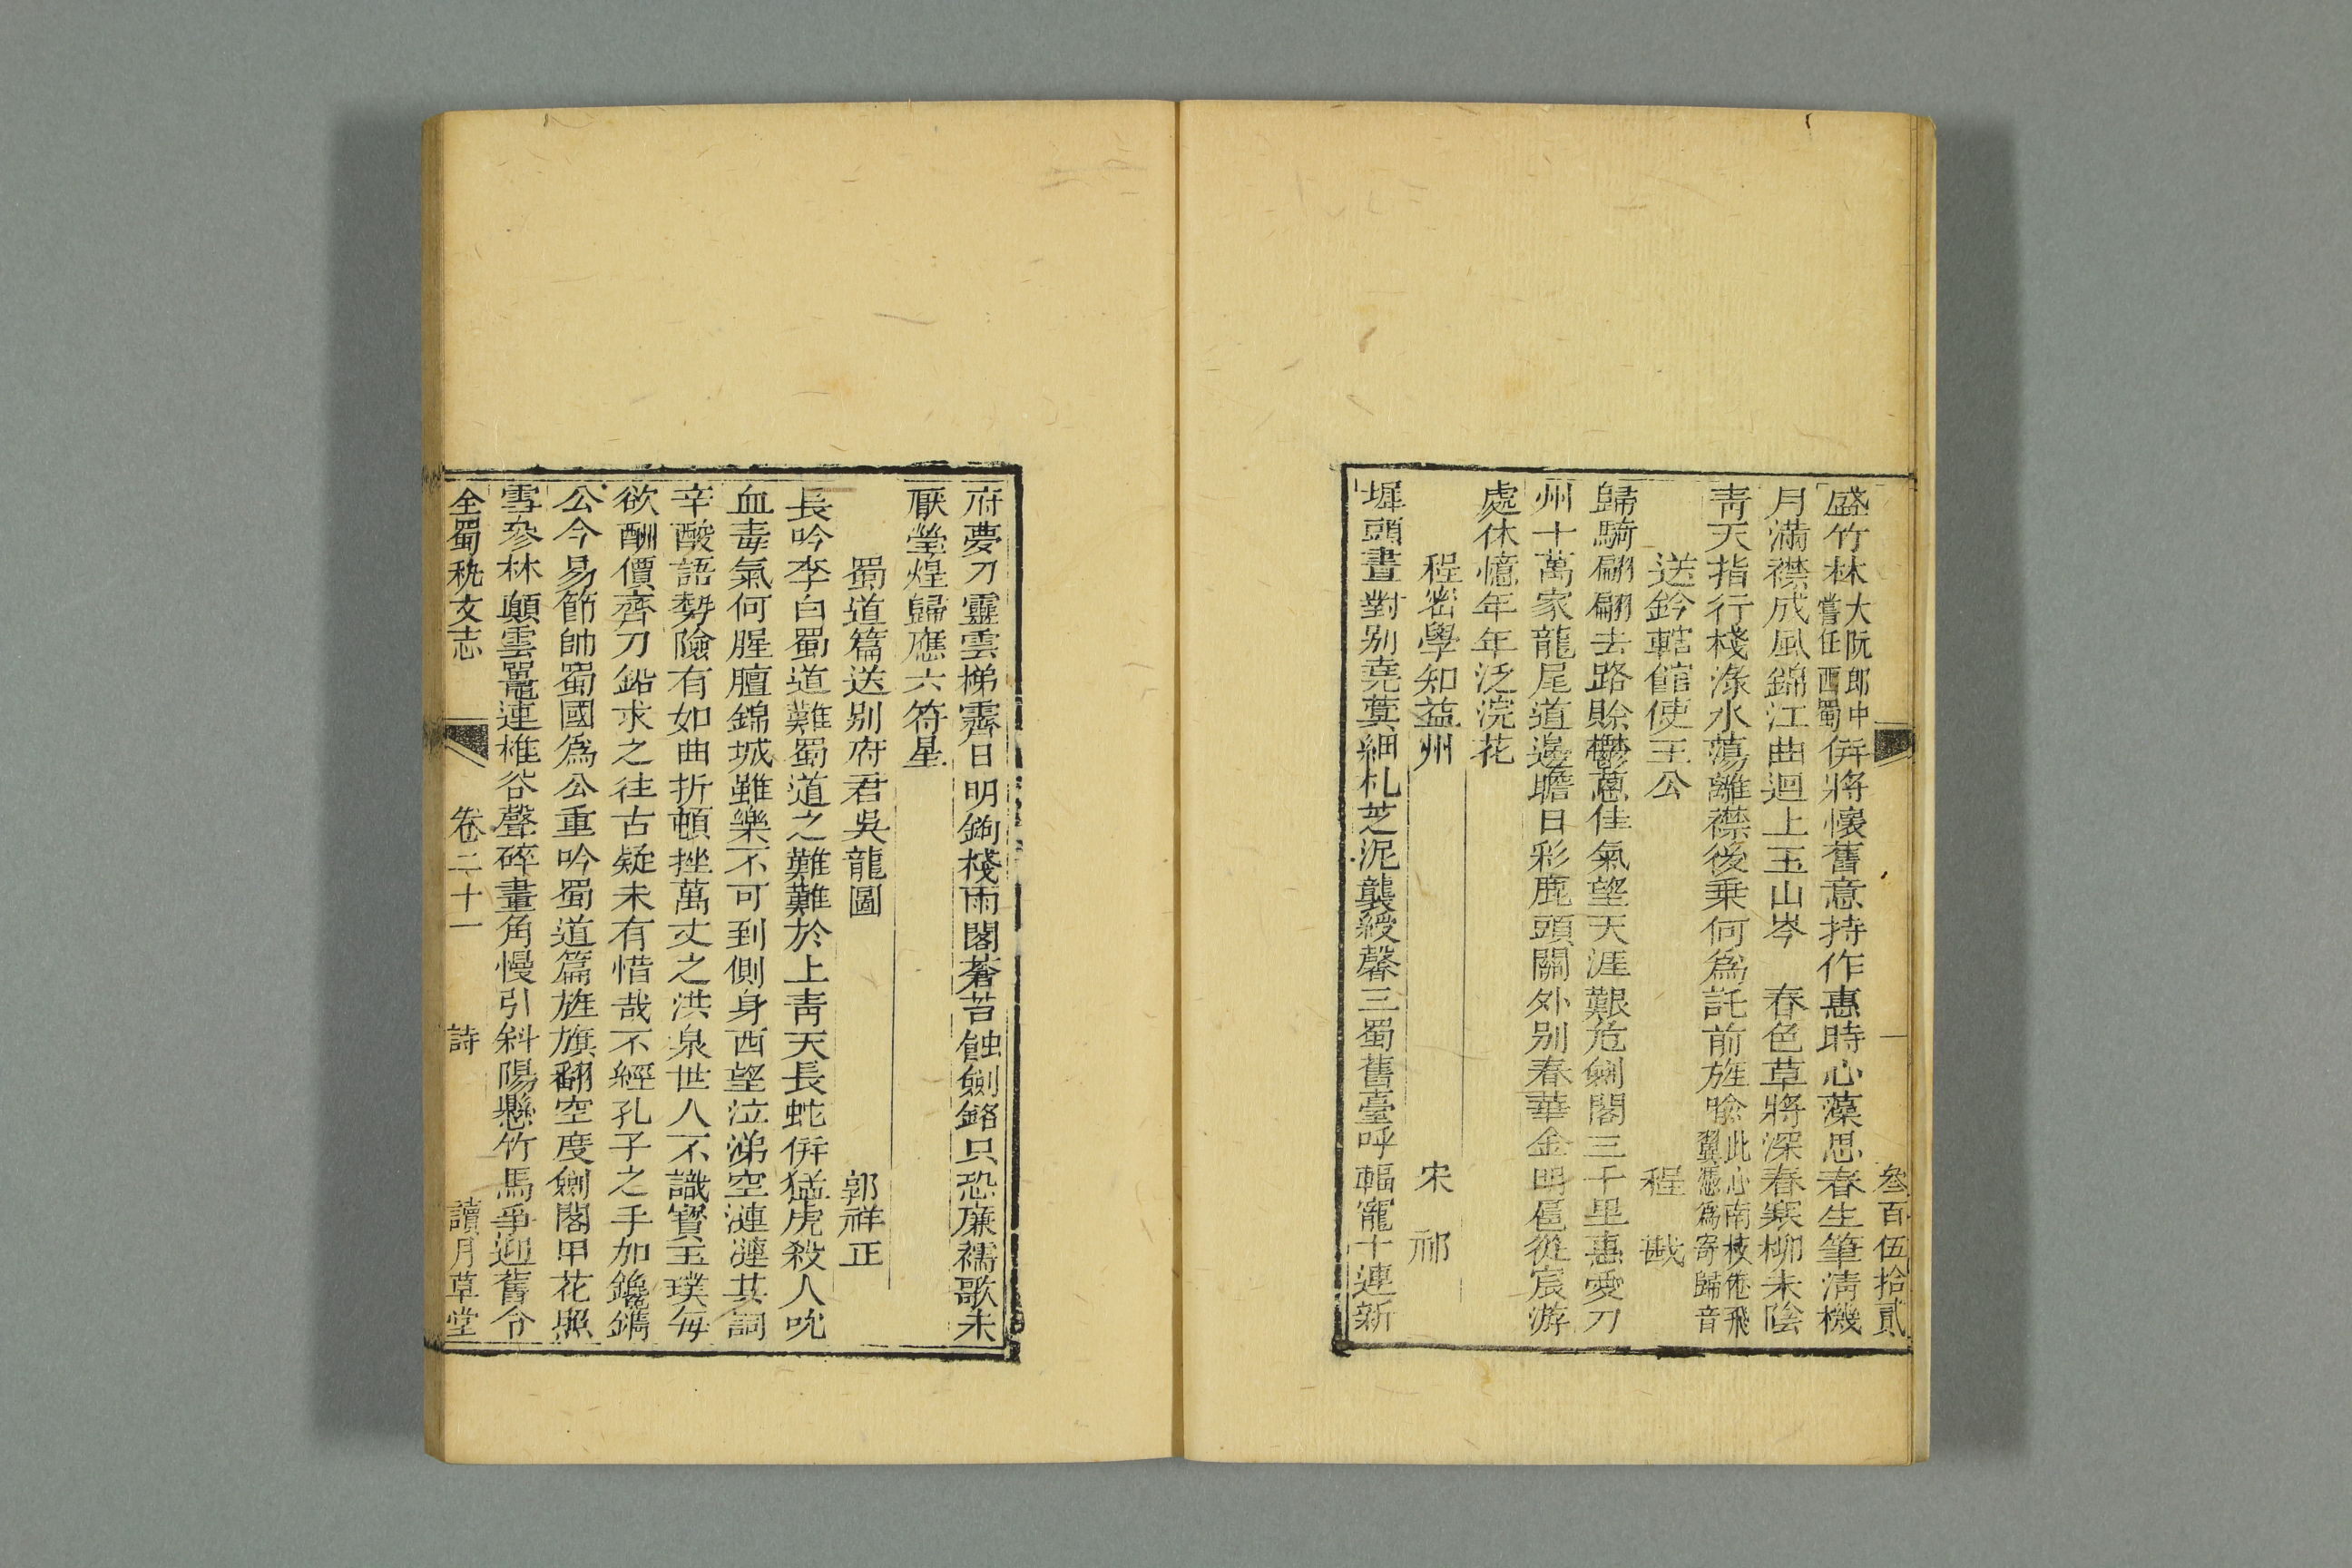 叄百伍拾貳
盛竹林大阮郎中嘗任西蜀併將懷舊意持作惠時心藻思春生筆淸機
月滿襟成風錦江曲迴上玉山岑　春色草將深春寒柳未陰
靑天指行棧淥水蕩離襟後乗何爲託前旌喩此心南枝倦飛翼憑爲寄歸音
送鈐轄館使王公　程戡
歸騎翩翩去路賒鬱葱佳氣望天涯艱危劍閣三千里惠愛刀
州十萬家龍尾道邊瞻日彩鹿頭關外別春華金明扈從宸游
處休憶年年泛浣花
程密學知益州　宋　祁
墀頭晝對別堯蓂細札芝泥襲綬馨三蜀舊臺呼輻寵十連新
府夢刀靈雲梯霽日明鉤棧雨閣蒼苔蝕劍銘只恐㢘襦歌未
厭瑩煌歸應六符星
蜀道篇送別府君吳龍圖　郭祥正
長吟李白蜀道難蜀道之難難於上靑天長蛇併猛虎殺人吮
血毒氣何腥膻錦城雖樂不可到側身西望泣涕空漣漣其詞
辛酸語勢險有如曲折頓挫萬丈之洪泉世人不識寶玉璞每
欲酬價齊刀鉛求之往古疑未有惜哉不經孔子之手加鑱鐫
公今易節帥蜀國爲公重吟蜀道篇旌旗翻空度劍閣甲花照
雪參林顚雲鼉連椎谷聲碎畫角慢引斜陽懸竹馬爭迎舊令
全蜀秇文志　卷二十一　詩　讀月草堂